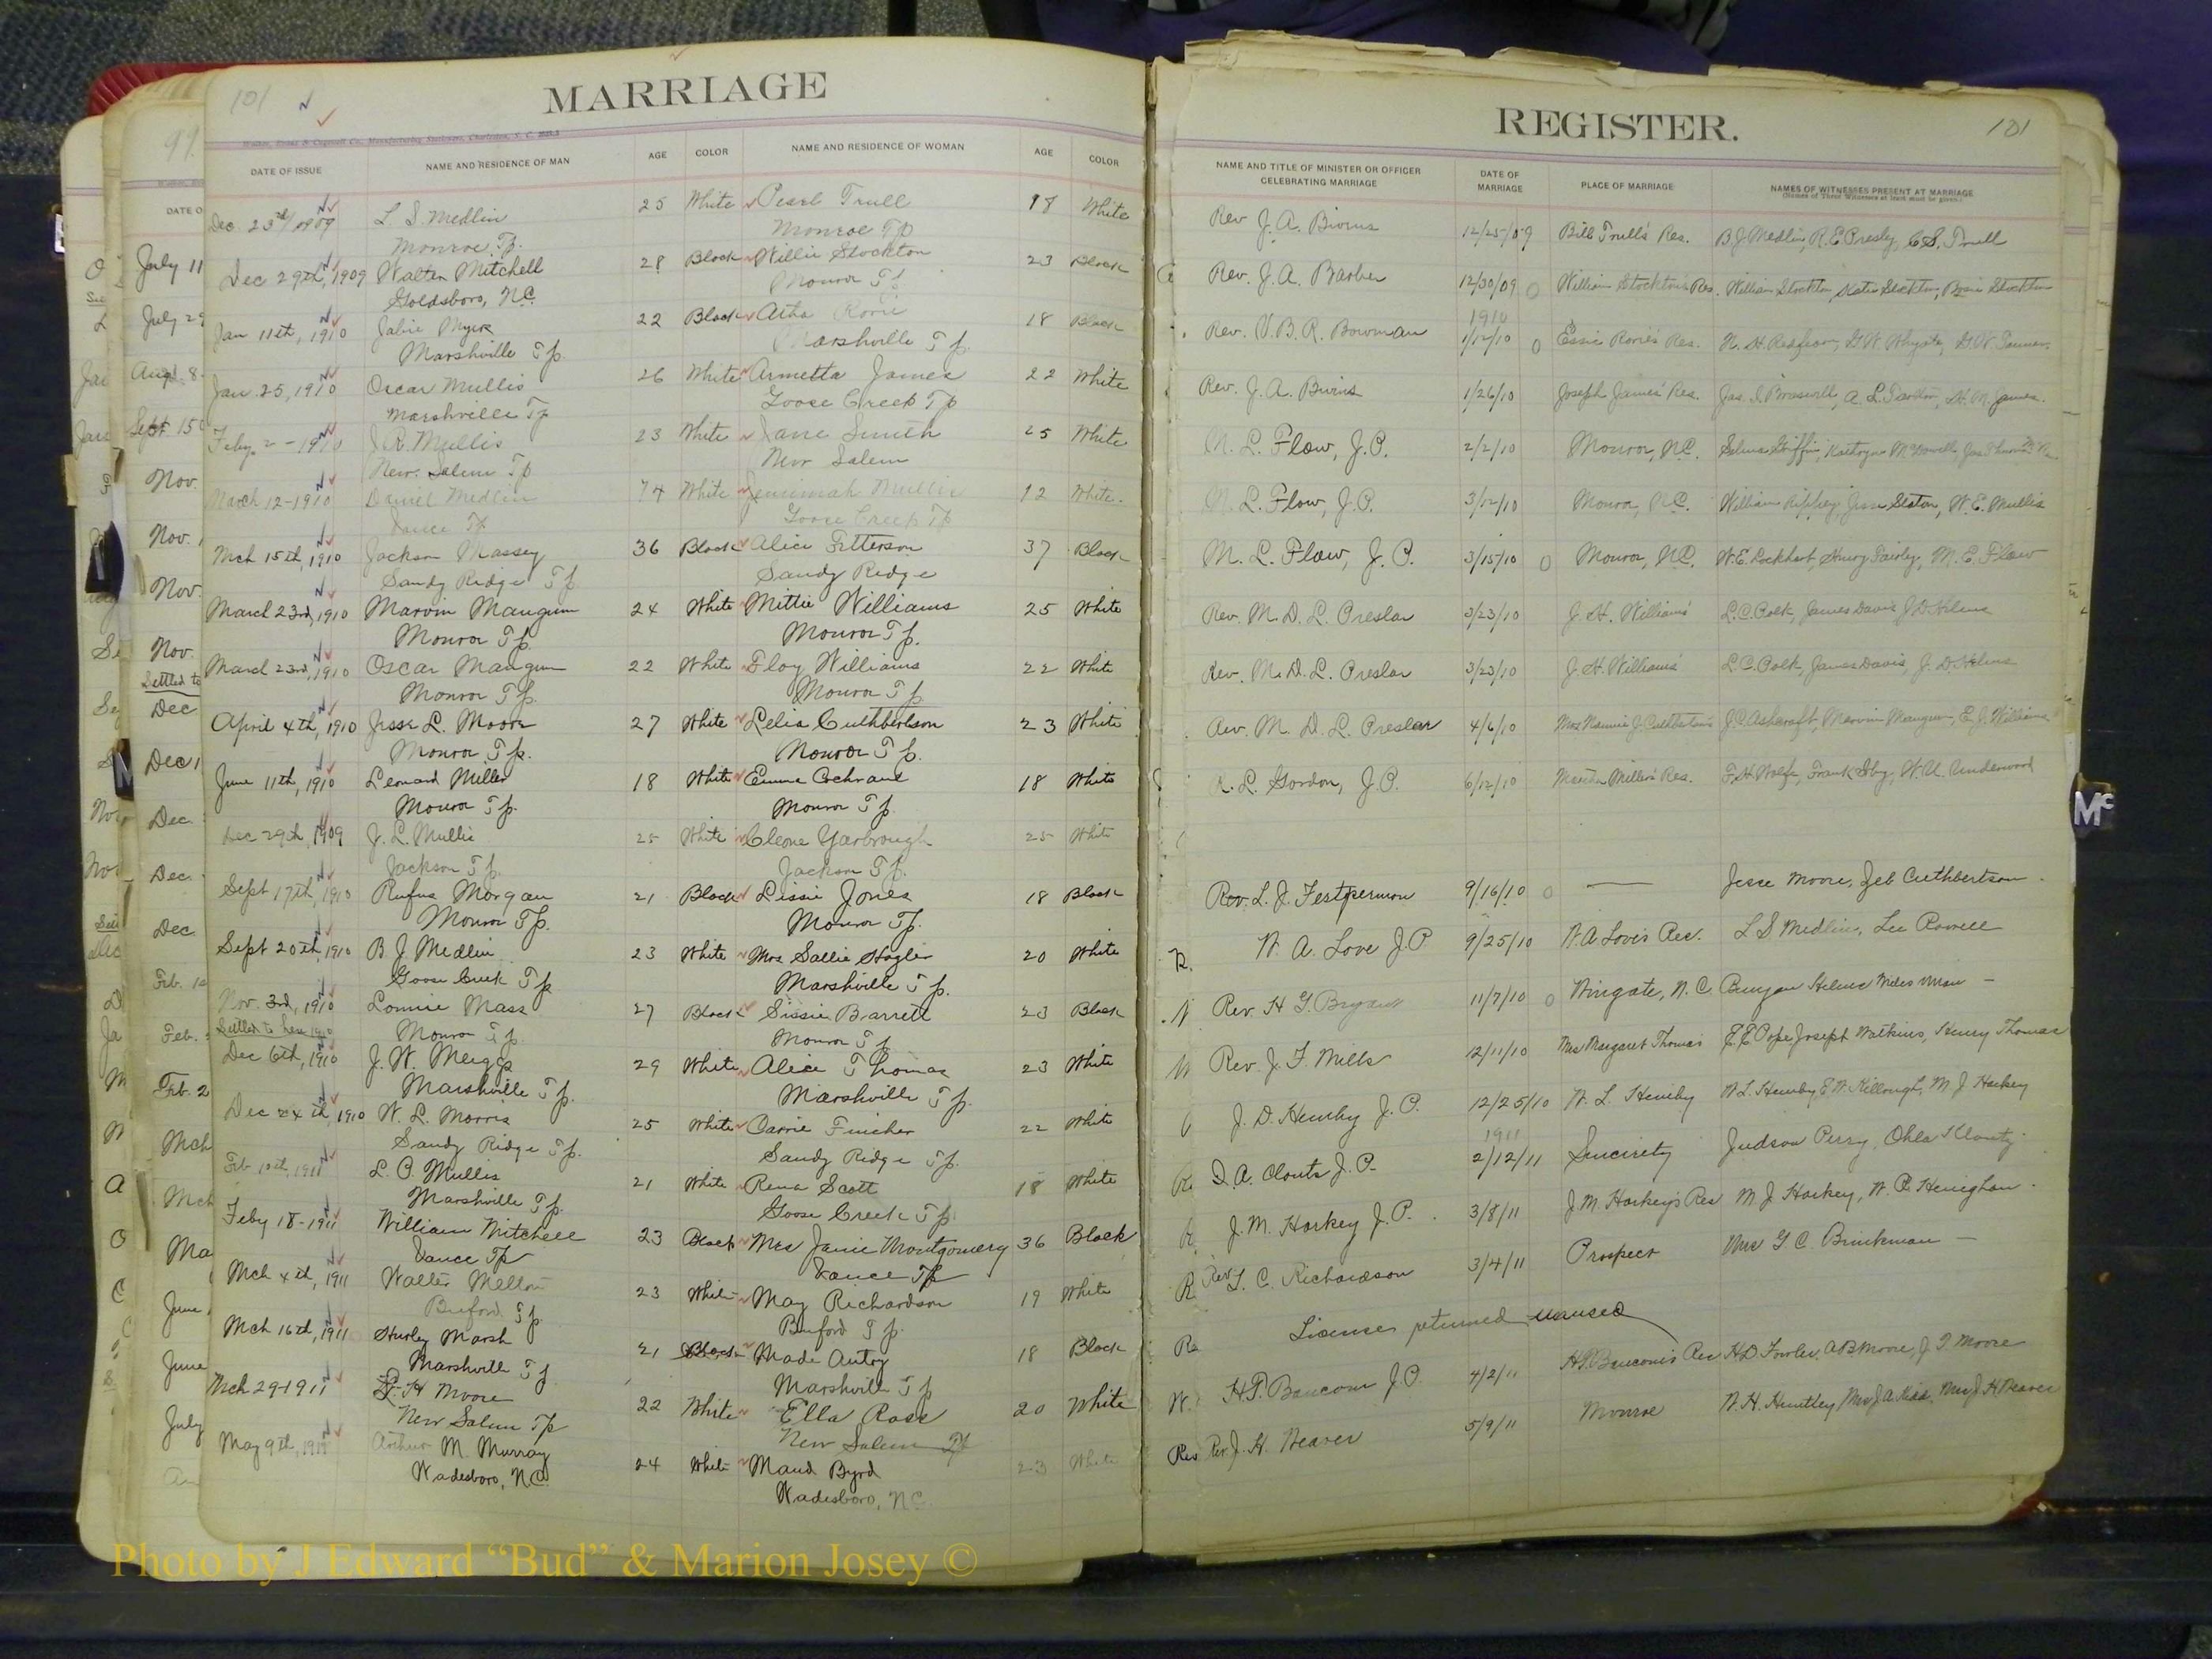 101
MARRIAGE
Walker, Evans & Cogswell Co., Manufacturing Stationers, Charleston, S. C.
DATE OF ISSUE NAME AND RESIDENCE OF MAN AGE COLOR NAME AND RESIDENCE OF WOMAN AGE COLOR
Dec. 23rd/1909 L. S. Medlin 25 White Pearl Trull 18 White
Monroe Tp. Monroe Tp
Dec 29th, 1909 Walter Mitchell 28 Black Willie Stockton 23 Black
Goldsboro, N.C. Monroe Tp
Jan 11th, 1910 Myers 22 Black Rorie 18 Black
Marshville Tp. Marshville Tp.
Jan. 25, 1910 Oscar Mullis 26 White Armetta James 22 White
Marshville Tp Goose Creek Tp
Feby. 2-1910 J. R. Mullis 23 White Jane Smith 25 White
New Salem Tp New Salem
March 12-1910 Daniel Medlin 74 White Mullis White
Vance Tp Goose Creek Tp
Mch 15th, 1910 Jackson Massey 36 Black Alice 37 Black
Sandy Ridge Tp Sandy Ridge
March 23rd, 1910 Marvin Mangum 24 White Mittie Williams 25 White
Monroe Tp. Monroe Tp.
March 23rd, 1910 Oscar Mangum 22 White Floy Williams 22 White
Monroe Tp. Monroe Tp
April 4th, 1910 Jesse L. Moore 27 White Lelia Cuthbertson 23 White
Monroe Tp. Monroe Tp.
June 11th, 1910 Leonard Miller 18 White Emma Cochrane 18 White
Monroe Tp. Monroe Tp.
Dec 29th, 1909 J. L. Mullis 25 White Cleone Yarbrough 25 White
Jackson Tp. Jackson Tp.
Sept 17th, 1910 Rufus Morgan 21 Black Lissie Jones 18 Black
Monroe Tp. Monroe Tp.
Sept 20th, 1910 B J Medlin 23 White Mrs Sallie Hagler 20 White
Goose Creek Tp Marshville Tp.
Nov. 3rd, 1910 Lonnie Mass 27 Black Sissie Barrett 23 Black
Settled to here 1910 Monroe Tp. Monroe Tp
Dec 6th, 1910 J. W. Meiggs 29 White Alice Thomas 23 White
Marshville Tp. Marshville Tp.
Dec 24th, 1910 W. L. Morris 25 White Carrie Fincher 22 White
Sandy Ridge Tp. Sandy Ridge Tp.
Feb 10th, 1911 L. C. Mullis 21 White Rena Scott 18 White
Marshville Tp. Goose Creek Tp
Feby 18-1911 William Mitchell 23 Black Mrs Janie Montgomery 36 Black
Vance Tp Vance Tp
Mch 4th, 1911 Walter Melton 23 White May Richardson 19 White
Buford Tp Buford Tp.
Mch 16th, 1911 Hurley Marsh 21 Black Made Autry 18 Black
Marshville Tp Marshville Tp
Mch 29-1911 H Moore 22 White Ella Rose 20 White
New Salem Tp New Salem Tp
May 9th, 1911 Arthur M. Murray 24 White Maud Byrd 23 White
Wadesboro, N.C. Wadesboro, N.C.
REGISTER.
101
NAME AND TITLE OF MINISTER OR OFFICER CELEBRATING MARRIAGE DATE OF MARRIAGE PLACE OF MARRIAGE NAMES OF WITNESSES PRESENT AT MARRIAGE
(Names of Three Witnesses at least must be given.)
Rev J. A. Bivens 12/25/09 Bill Trull's Res. B. J. Medlin, R. E. Presly, C. S. Trull
Rev. J. A. Barber 12/30/09 William Stockton's Res. William Stockton, Katie Stockton, Stockton
1910
Rev. V. B. R. Bowman 1/12/10 Essie Rorie's Res.
Rev. J. A. Bivins 1/26/10 Joseph James' Res. Jas. I. Braswell, A. L. H. M. James.
M. L. Flow, J.P. 2/2/10 Monroe, N.C. Selma Griffin, Kathryn McDowell,
M. L. Flow, J.P. 3/12/10 Monroe, N.C. William Jesse Staton, W. E. Mullis
M. L. Flow, J. P. 3/15/10 Monroe, N.C. W. E. Lockhart, Henry Fairley, M. E. Flow
Rev. M. D. L. Preslar 3/23/10 J. H. Williams' L. C. Polk, James Davis, J. D. Helms
Rev. M. D. L. Preslar 3/23/10 J. H. Williams' L. C. Polk, James Davis, J. D. Helms
Rev. M. D. L. Preslar 4/6/10 Mrs Nannie J. Cuthbertson's J. C. Ashcraft, Marvin Mangum, E. J. Williams
R. L. Gordon, J.P. 6/12/10 Miller's Res. F. H. Wolfe, Frank W. U. Underwood
Rev. L. J. 9/16/10 Jesse Moore, Zeb Cuthbertson
W. A. Love J.P 9/25/10 W. A Love's Res. L S Medlin, Lee Rowell
Rev. H G. Bryant 11/7/10 Wingate, N. C. Bunyan Helms
Rev. J. F. Mills 12/11/10 Mrs Margaret Thomas E. E Pope Joseph Watkins, Henry Thomas
J. D. Hemby J. P. 12/25/10 W. L. Hemby W L. Hemby, E. W. Killough, M. J Harkey
1911
D. A. Clontz J. P. 2/12/11 Sincerity Judson Perry, Ohla Klontz
J. M. Harkey J. P. 3/8/11 J. M. Harkey's Res M J Harkey, W. P. Henigham.
Rev. L. C. Richardson 3/4/11 Prospect Mrs G C. Brinkman
License returned unused
H. P. Baucom J. P. 4/2/11 H. P. Baucom's Res H. D. Fowler, A B Moore, J. T. Moore
Rev. J. H. Weaver 5/9/11 Monroe W. H. Huntley, Mrs J. A. Kidd, Mrs J. H Weaver
97
DATE O
July 11
July 29
Aug. 8
Sept 15
Nov.
Nov.
Nov.
Nov.
Settled to
Dec
Dec 1
Dec.
Dec.
Dec
Feb.
Feb.
Feb. 2
Mch
Mch
Ma
June
June
July
Mc
Photo by J Edward “Bud” & Marion Josey ©